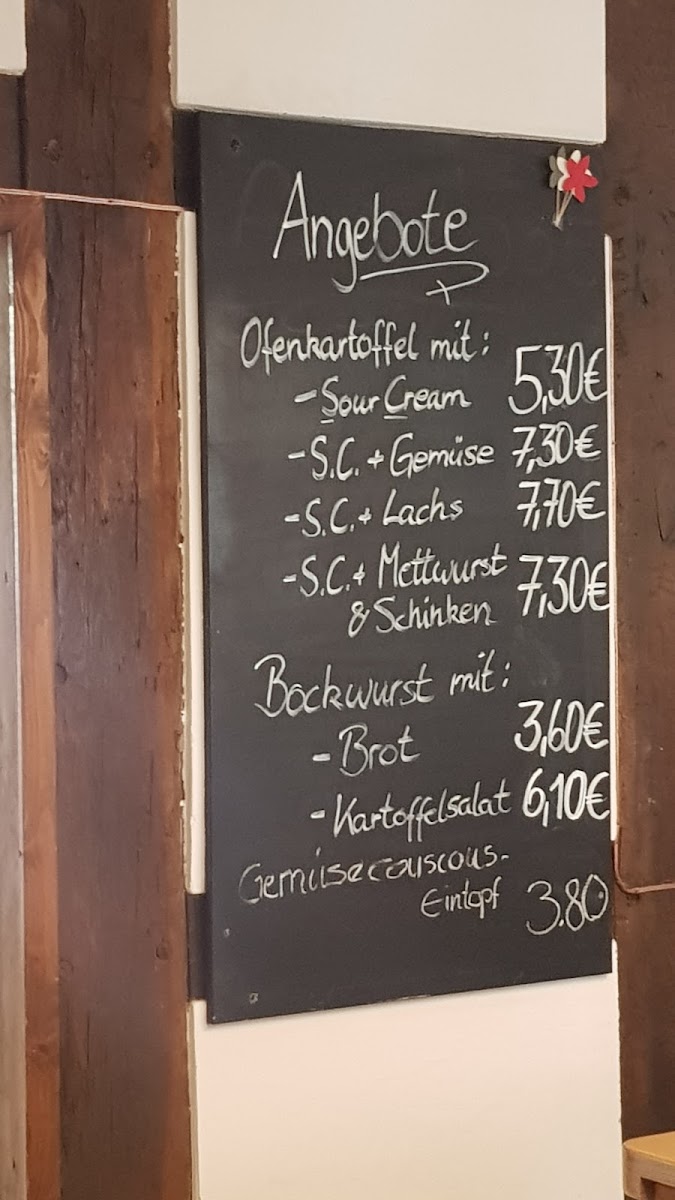 Angebote
Ofenkartoffel mit:
- Sour Cream 5,30€
- S.C. + Gemüse 7,30€
- S.C. + Lachs 7,70€
- S.C. + Mettwurst
& Schinken 7,30€
Bockwurst mit:
- Brot 3,60€
- Kartoffelsalat 6,10€
Gemüsecouscous-
Eintopf 3.80